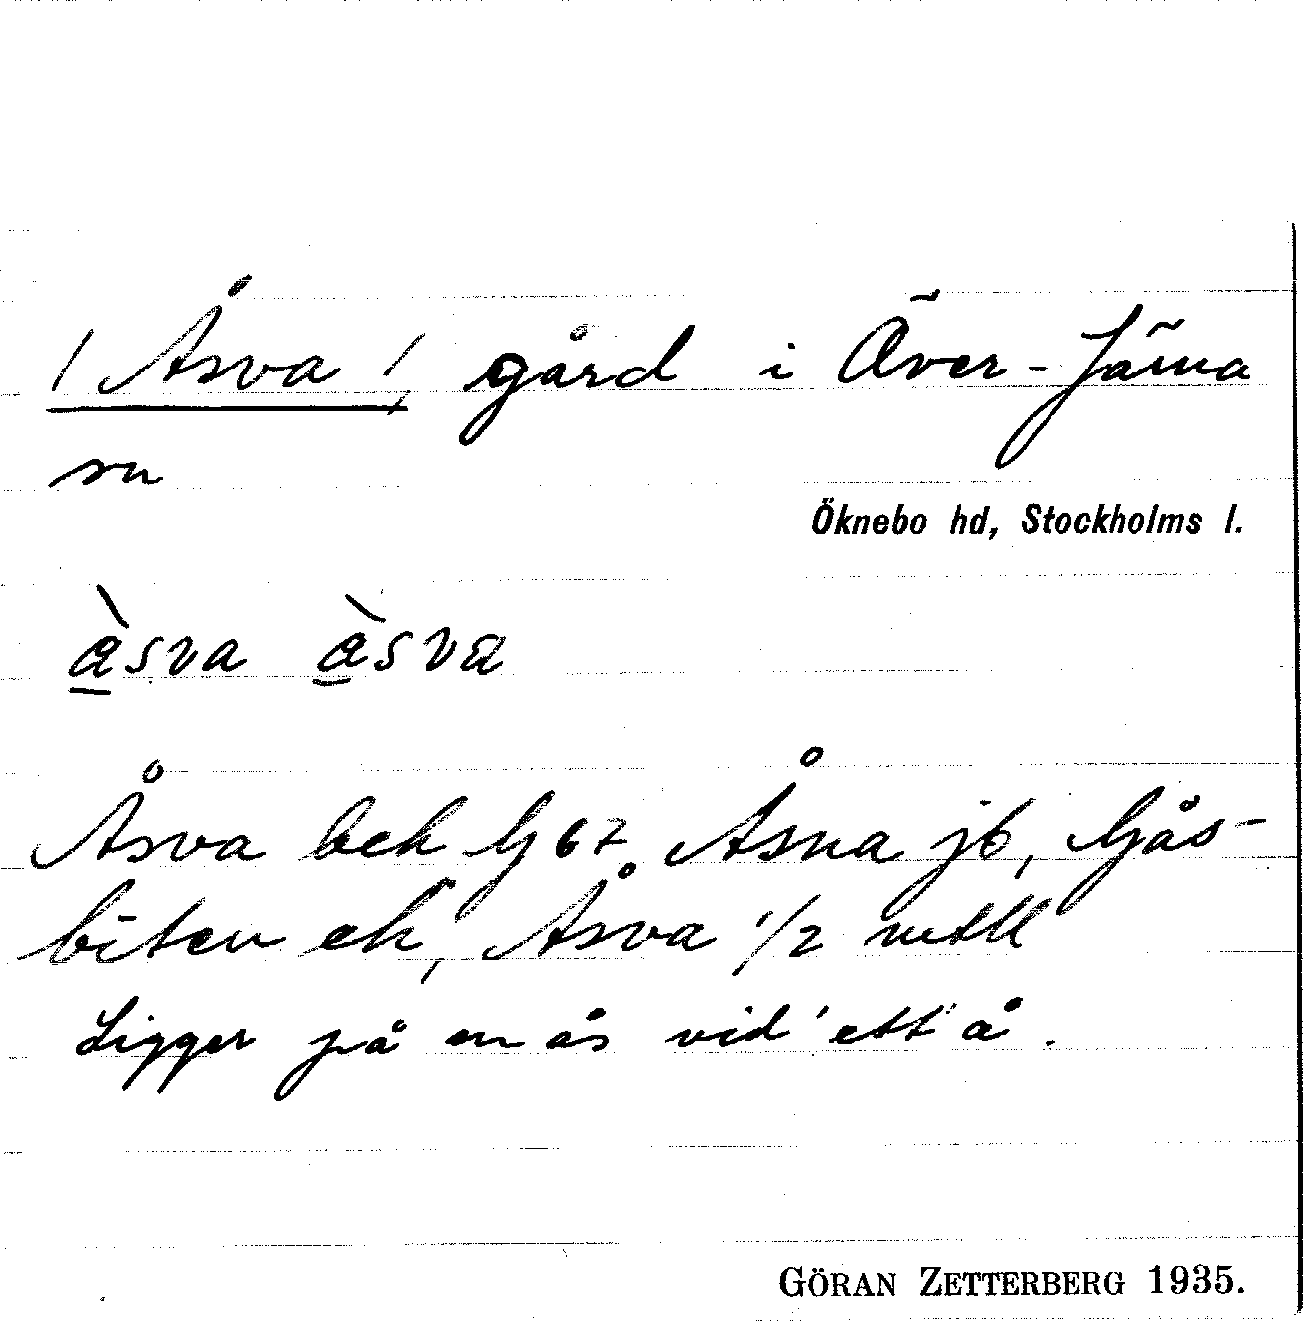 / Åsva /, gård i Över-Järna
sn
Öknebo hd, Stockholms l.
àsva àsva
Åsva bek lj 67. Åsna jb, Gås-
biten ek, Åsva 1/2 mtll
Ligger på en ås vid 'ett' å.
GÖRAN ZETTERBERG 1935.